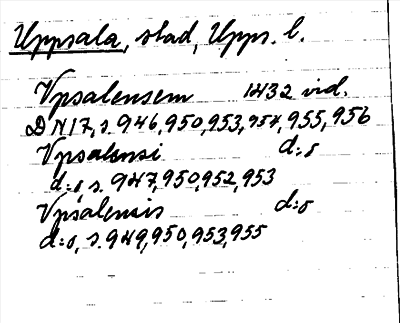 Uppsala, stad, Upps. l.
Vpsalensem 1432 vid.
DN17, s. 946, 950, 953, 954, 955, 956
Vpsalensi d:o
d:o, s. 947, 950, 952, 953
Vpsalensis d:o
d:o, s. 949, 950, 953, 955